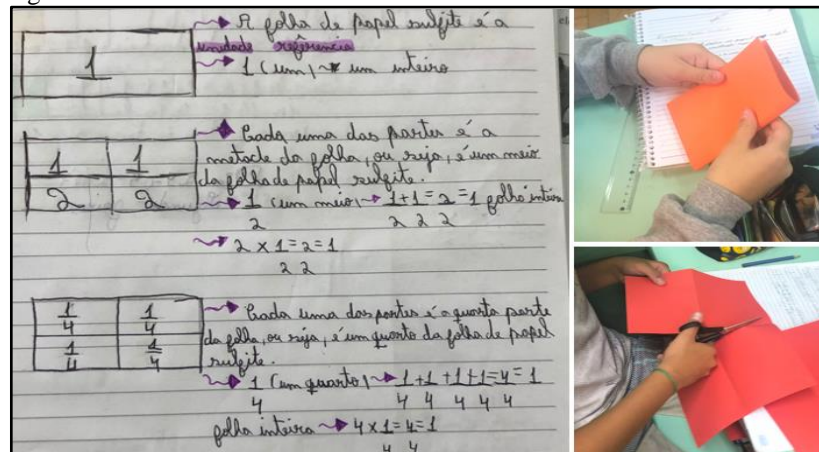 1
A folha de papel sulfite é a
unidade referência
1 (um) um inteiro
1 1
2 2
Cada uma das partes é a
metade da folha, ou seja, é um meio
da folha de papel sulfite.
1 (um meio) 1+1=2=1 folha inteira
2 2 2 2
2 x 1=2=1
2 2
1/4 1/4
1/4 1/4
Cada uma das partes é a quarta parte
da folha, ou seja, é um quarto da folha de papel
sulfite.
1 (um quarto) 1+1+1+1=4=1
4 4 4 4 4 4
folha inteira 4x1=4=1
4 4